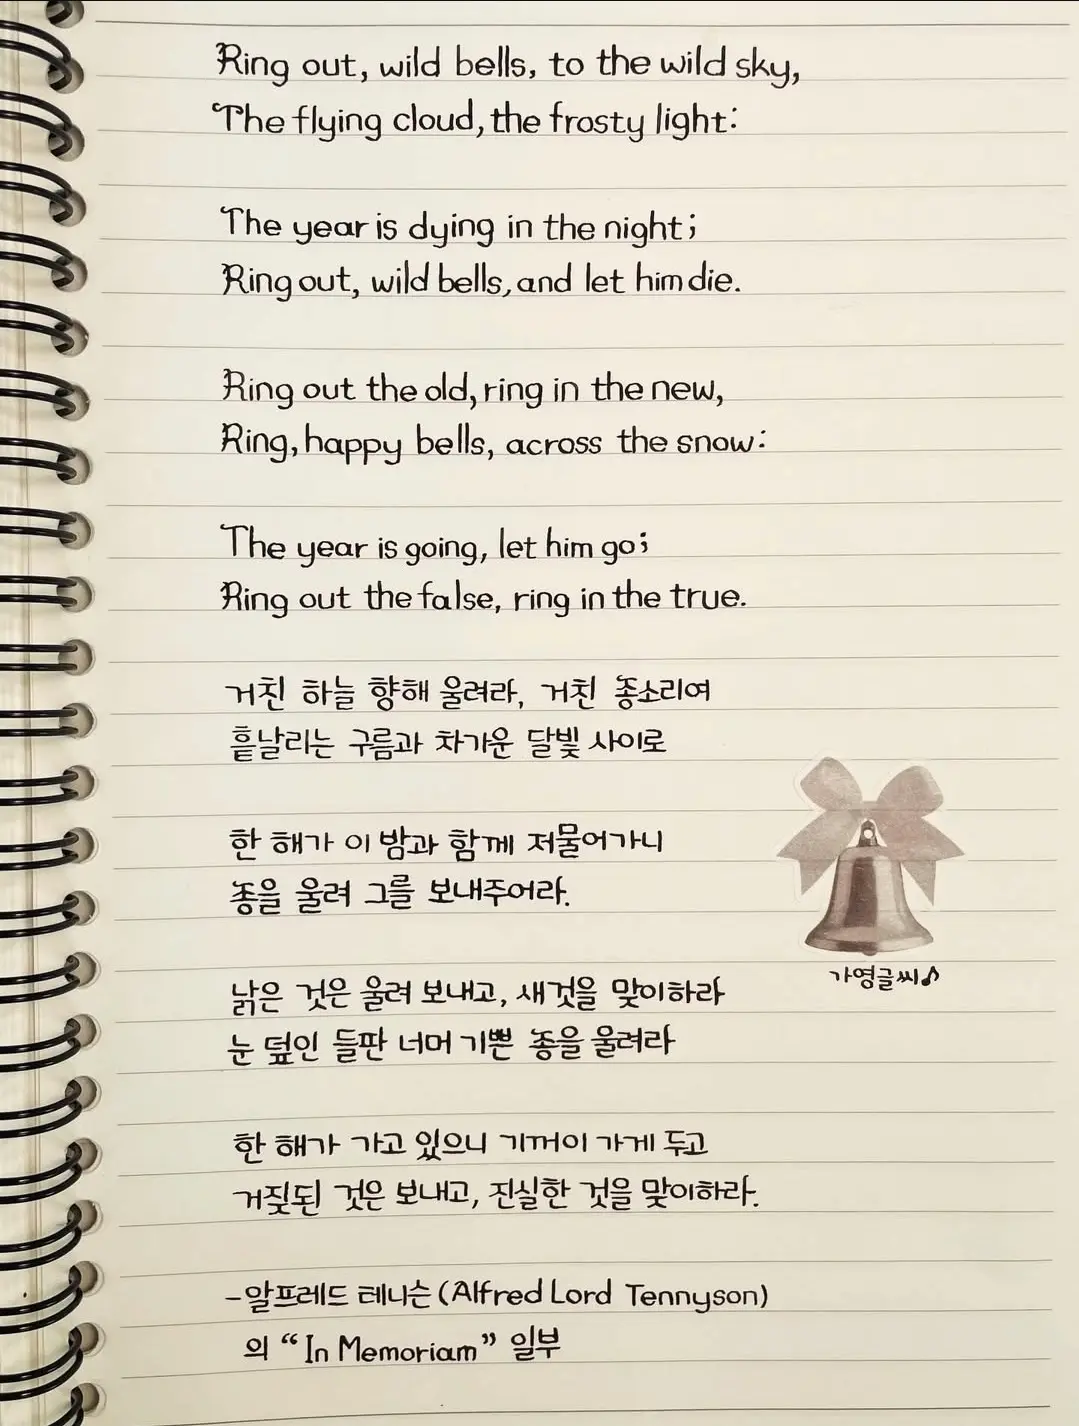 Ring out, wild bells, to the wild sky,
The flying cloud, the frosty light:
The year is dying in the night;
Ring out, wild bells, and let him die.
Ring out the old, ring in the new,
Ring, happy bells, across the snow:
The year is going, let him go;
Ring out the false, ring in the true.
거친 하늘 향해 울려라, 거친 종소리여
흩날리는 구름과 차가운 달빛 사이로
한 해가 이 밤과 함께 저물어가니
종을 울려 그를 보내주어라.
낡은 것은 울려 보내고, 새것을 맞이하라
눈 덮인 들판 너머 기쁜 종을 울려라
한 해가 가고 있으니 기꺼이 가게 두고
거짓된 것은 보내고, 진실한 것을 맞이하라.
가영글씨♪
-알프레드 테니슨(Alfred Lord Tennyson)
의 “In Memoriam” 일부